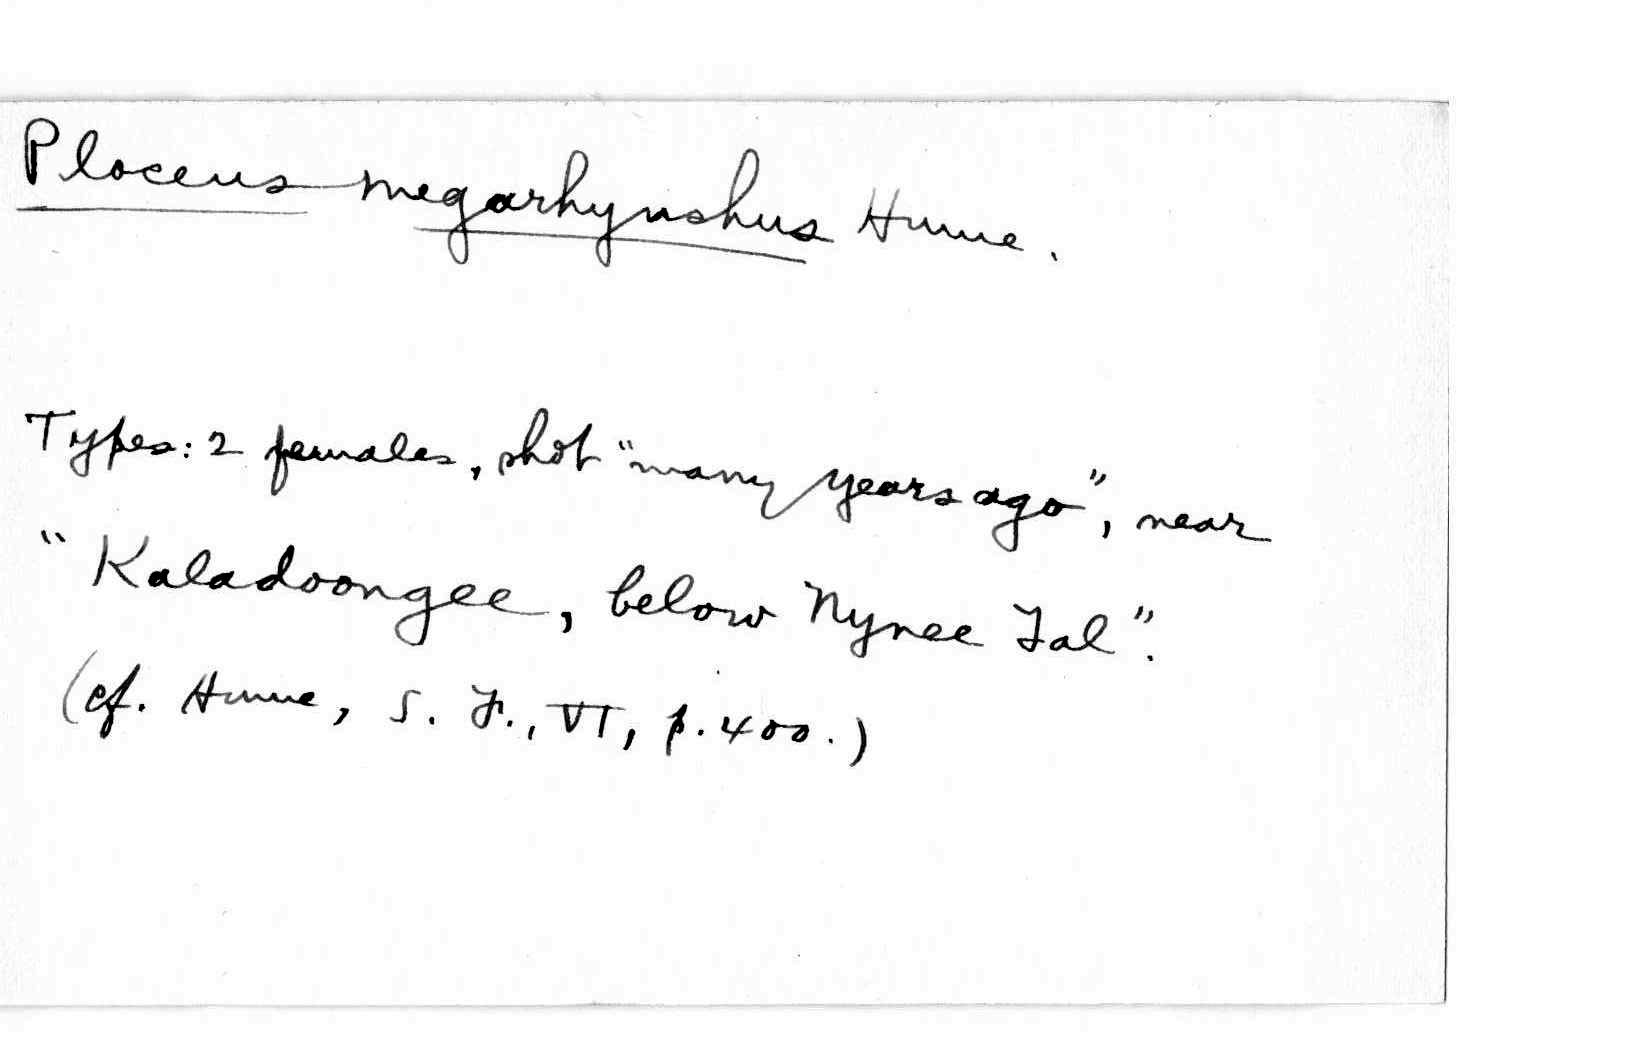 Ploceus megarhynchus Hume.
Types: 2 females, shot "many years ago", near
"Kaladoongee, below Nynee Tal".
(cf. Hume, S. F., VI, p. 400.)